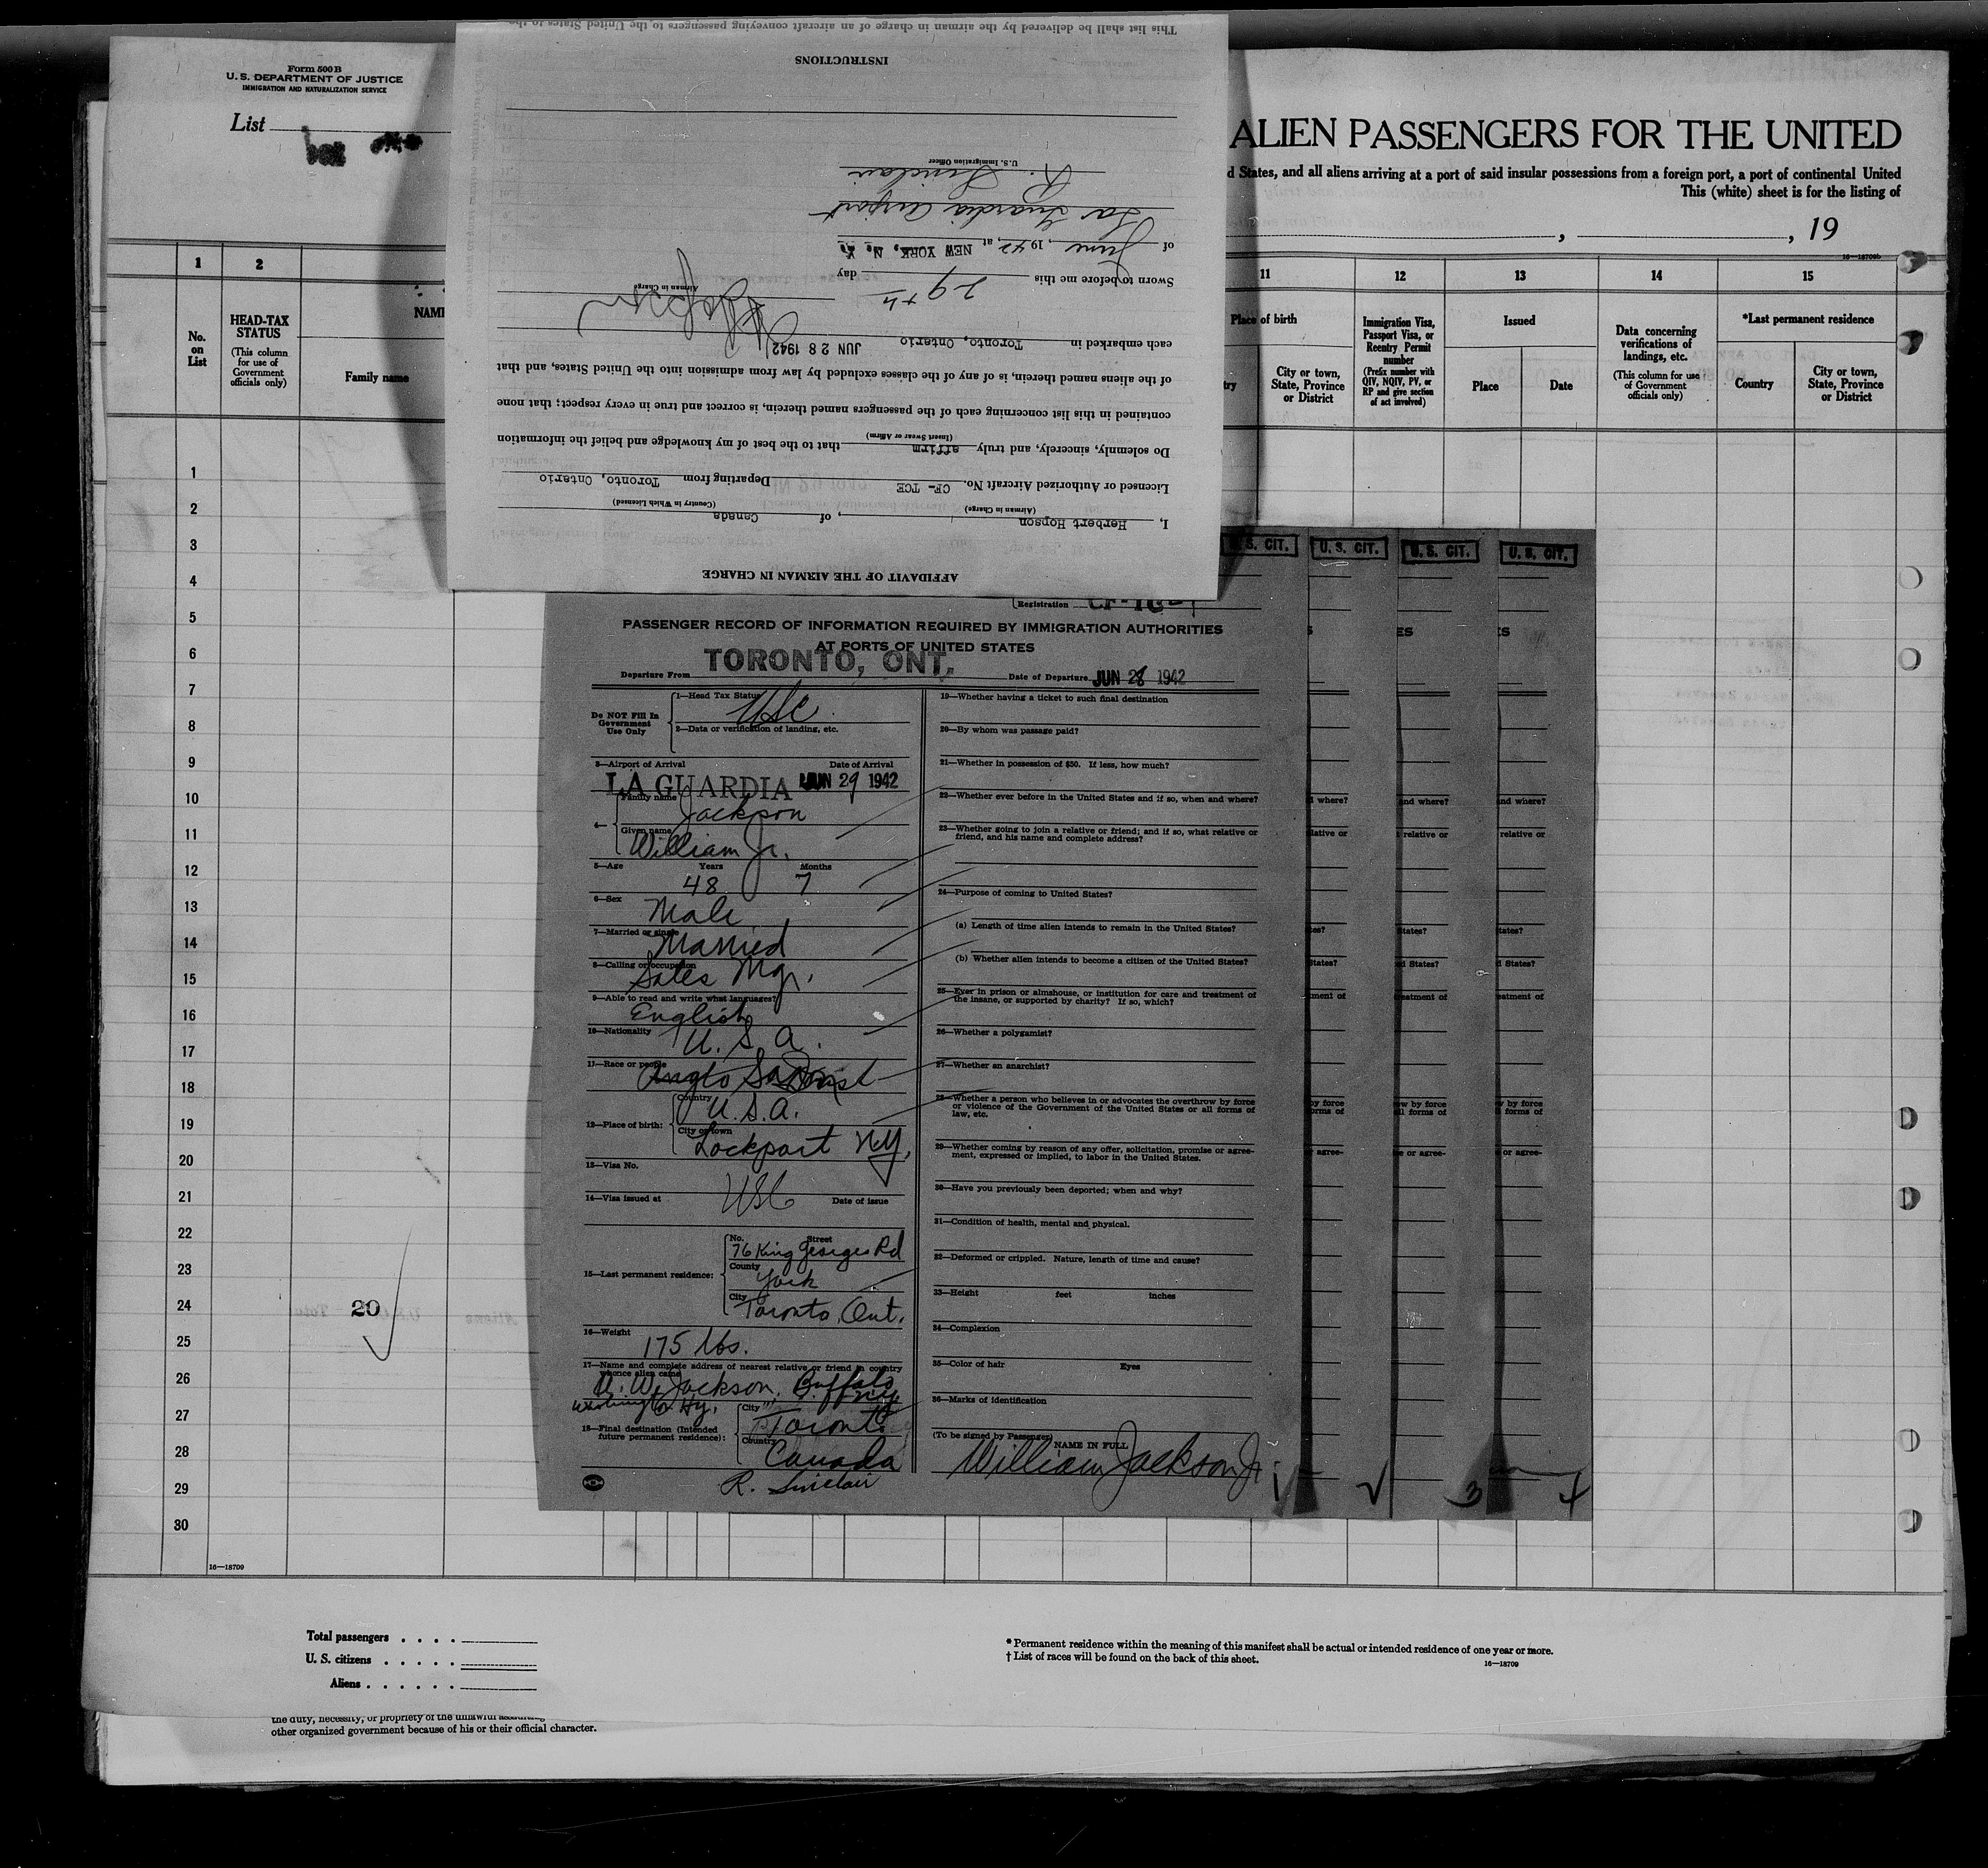 Form 500 B
U. S. DEPARTMENT OF JUSTICE
IMMIGRATION AND NATURALIZATION SERVICE
List
ALIEN PASSENGERS FOR THE UNITED
d States, and all aliens arriving at a port of said insular possessions from a foreign port, a port of continental United
This (white) sheet is for the listing of
, , 19
16—18709b
1 2 11 12 13 14 15
No. on List
HEAD-TAX STATUS
(This column for use of Government officials only)
NAME
Family name
Place of birth
City or town, State, Province or District
Immigration Visa, Passport Visa, or Reentry Permit number
(Prefix number with QIV, NQIV, PV, or RP and give section of act involved)
Issued
Place
Date
Data concerning verifications of landings, etc.
(This column for use of Government officials only)
*Last permanent residence
Country
City or town, State, Province or District
1
2
3
4
5
6
7
8
9
10
11
12
13
14
15
16
17
18
19
20
21
22
23
24
25
26
27
28
29
30
20
16—18709
AFFIDAVIT OF THE AIRMAN IN CHARGE
I, Herbert Hopson, of Canada
(Airman in Charge) (Country in Which Licensed)
Licensed or Authorized Aircraft No. CF- TCE Departing from Toronto, Ontario
Do solemnly, sincerely, and truly affirm that to the best of my knowledge and belief the information
(Insert Swear or Affirm)
contained in this list concerning each of the passengers named therein, is correct and true in every respect; that none
of the aliens named therein, is of any of the classes excluded by law from admission into the United States, and that
each embarked in Toronto, Ontario JUN 28 1942
Airman in Charge
Sworn to before me this 29th day
of June, 1942, at NEW YORK, N. Y.
La Guardia Airport
R. Sinclair
U.S. Immigration Officer
INSTRUCTIONS
This list shall be delivered by the airman in charge of an aircraft conveying passengers to the United States to the
U.S. CIT. U. S. CIT. U. S. CIT. U. S. CIT.
Registration
PASSENGER RECORD OF INFORMATION REQUIRED BY IMMIGRATION AUTHORITIES
AT PORTS OF UNITED STATES
Departure From TORONTO, ONT. Date of Departure JUN 28 1942
Do NOT Fill In Government Use Only
1—Head Tax Status USC
2—Data or verification of landing, etc.
3—Airport of Arrival Date of Arrival
LA GUARDIA JUN 29 1942
4— Family name Jackson
Given name William Jr.
5—Age Years Months
48 7
6—Sex Male
7—Married or single Married
8—Calling or occupation Sales Mgr.
9—Able to read and write what languages? English
10—Nationality U. S. A.
11—Race or people
12—Place of birth: Country U.S.A.
City or town Lockport N.Y.
13—Visa No.
14—Visa issued at USC Date of issue
15—Last permanent residence:
No. Street 76 King Georges Rd
County York
City Toronto, Ont.
16—Weight 175 lbs.
17—Name and complete address of nearest relative or friend in country
whence alien came
W. Jackson, Buffalo
18—Final destination (Intended future permanent residence):
City Toronto
Country Canada
R. Sinclair
19—Whether having a ticket to such final destination
20—By whom was passage paid?
21—Whether in possession of $50. If less, how much?
22—Whether ever before in the United States and if so, when and where?
23—Whether going to join a relative or friend; and if so, what relative or
friend, and his name and complete address?
24—Purpose of coming to United States?
(a) Length of time alien intends to remain in the United States?
(b) Whether alien intends to become a citizen of the United States?
25—Ever in prison or almshouse, or institution for care and treatment of
the insane, or supported by charity? If so, which?
26—Whether a polygamist?
27—Whether an anarchist?
28—Whether a person who believes in or advocates the overthrow by force
or violence of the Government of the United States or all forms of
law, etc.
29—Whether coming by reason of any offer, solicitation, promise or agree-
ment, expressed or implied, to labor in the United States.
30—Have you previously been deported; when and why?
31—Condition of health, mental and physical.
32—Deformed or crippled. Nature, length of time and cause?
33—Height feet inches
34—Complexion
35—Color of hair Eyes
36—Marks of identification
(To be signed by Passenger) NAME IN FULL
William Jackson Jr.
3 4
Total passengers . . . .
U. S. citizens . . . . .
Aliens . . . . . .
* Permanent residence within the meaning of this manifest shall be actual or intended residence of one year or more.
† List of races will be found on the back of this sheet.
16—18709
other organized government because of his or their official character.